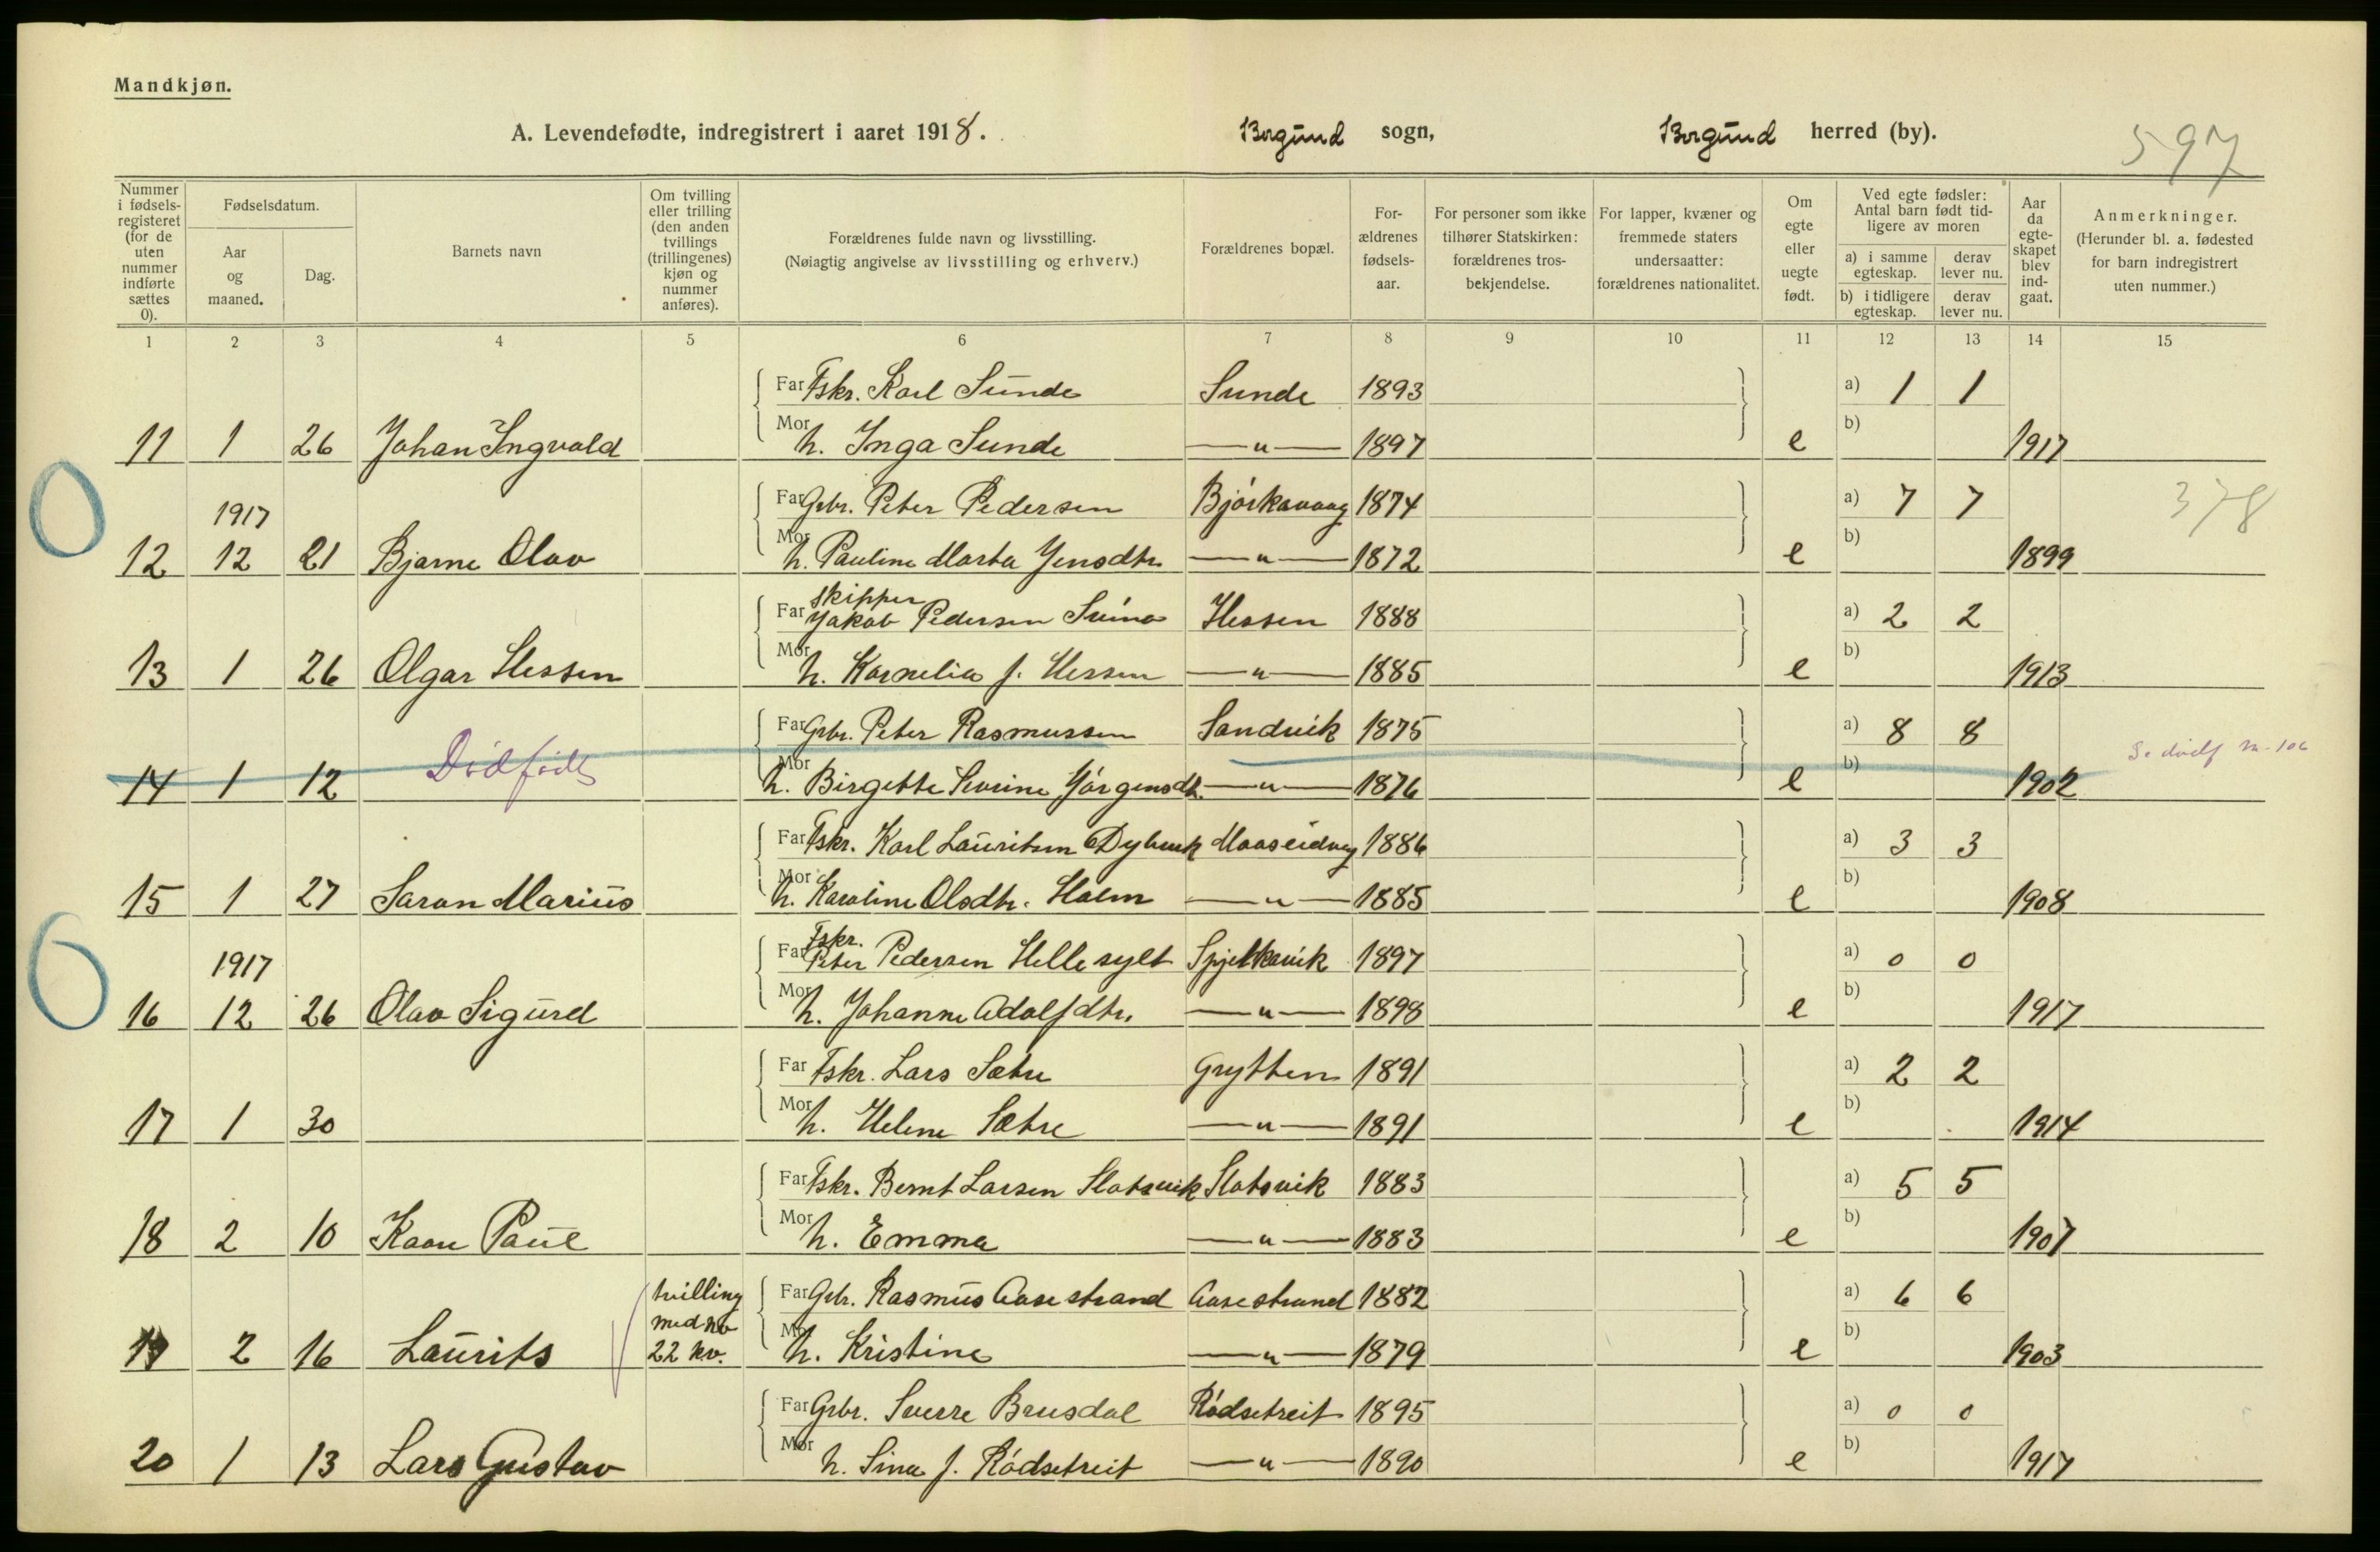 Mandkjøn.
A. Levendefødte, indregistrert i aaret 1918. Borgund sogn, Borgund herred (by).
597
Nummer i fødselsregisteret (for de uten nummer indførte sættes 0).
Fødselsdatum.
Aar og maaned.
Dag.
Barnets navn
Om tvilling eller trilling (den anden tvillings (trillingenes) kjøn og nummer anføres).
Forældrenes fulde navn og livsstilling.
(Nøiagtig angivelse av livsstilling og erhverv.)
Forældrenes bopæl.
Forældrenes fødselsaar.
For personer som ikke tilhører Statskirken: forældrenes trosbekjendelse.
For lapper, kvæner og fremmede staters undersaatter: forældrenes nationalitet.
Om egte eller uegte født.
Ved egte fødsler: Antal barn født tidligere av moren
a) i samme egteskap.
derav lever nu.
b) i tidligere egteskap.
derav lever nu.
Aar da egteskapet blev indgaat.
Anmerkninger.
(Herunder bl. a. fødested for barn indregistrert uten nummer.)
1 2 3 4 5 6 7 8 9 10 11 12 13 14 15
Far Fskr. Karl Sunde Sunde 1893 a) 1 1
11 1 26 Johan Ingvald Mor h. Inga Sunde —"— 1897 e b) 1917
1917 Far Gbr. Peter Pedersen Bjørkavaag 1874 a) 7 7 378
12 12 21 Bjarne Olav Mor h. Pauline Marta Jensdtr. —"— 1872 e b) 1899
skipper
Far Jakob Pedersen Hessen 1888 a) 2 2
13 1 26 Olgar Hessen Mor h. Kornelia f. Hessen —"— 1885 e b) 1913
Far Gbr. Peter Rasmussen Sandvik 1875 a) 8 8
14 1 12 Dødfødt Mor h. Birgitte Severine Jørgensdt. —"— 1876 e b) 1902
Far Fskr. Karl Lauritsen Dybvik Maaseidvaag 1886 a) 3 3
15 1 27 Saron Marius Mor h. Karoline Olsdtr. Holm —"— 1885 e b) 1908
Fskr.
1917 Far Peter Pedersen Hellesylt Spjelkavik 1897 a) 0 0
16 12 26 Olav Sigurd Mor h. Johanne Adolfdtr. —"— 1898 e b) 1917
Far Fskr. Lars Sætre Grytten 1891 a) 2 2
17 1 30 Mor h. Helene Sætre —"— 1891 e b) 1914
Far Fskr. Bernt Larsen Flatsvik Flatsvik 1883 a) 5 5
18 2 10 Kaare Paul Mor h. Emma —"— 1883 e b) 1907
tvilling Far Gbr. Rasmus Aasestrand Aasestrand 1882 a) 6 6
med no
19 2 16 Laurits 22 kv. Mor h. Kristine —"— 1879 e b) 1903
Far Gbr. Sverre Brusdal Rødsetreit 1895 a) 0 0
20 1 13 Lars Gustav Mor h. Sina f. Rødsetreit —"— 1890 e b) 1917